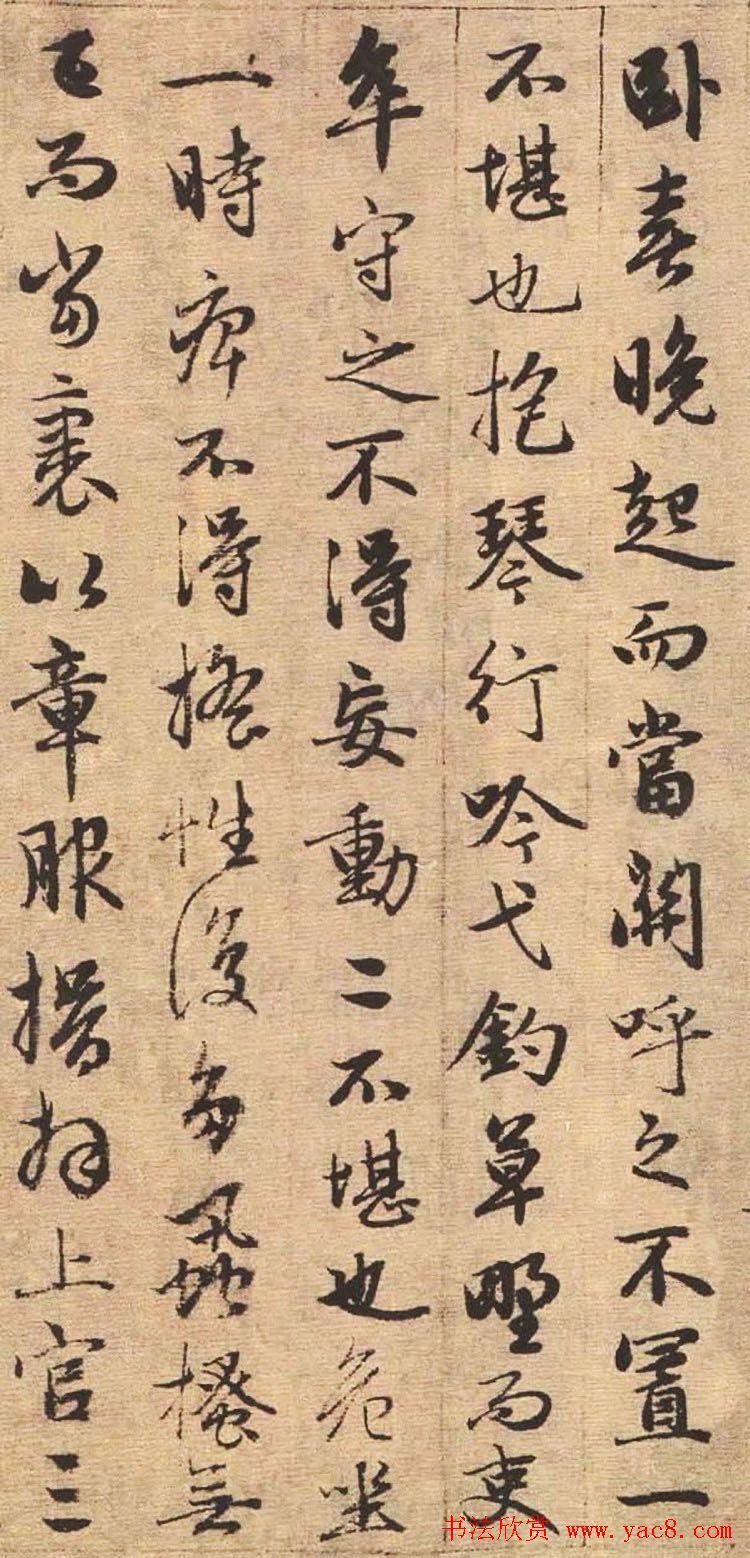 卧喜晚起而當關呼之不置一
不堪也抱琴行吟弋釣草野而吏
卒守之不得妄動二不堪也危坐
一時痹不得搖性復多蝨搔無
已而當裹以章服揖拜上官三
书法欣赏 www.yac8.com